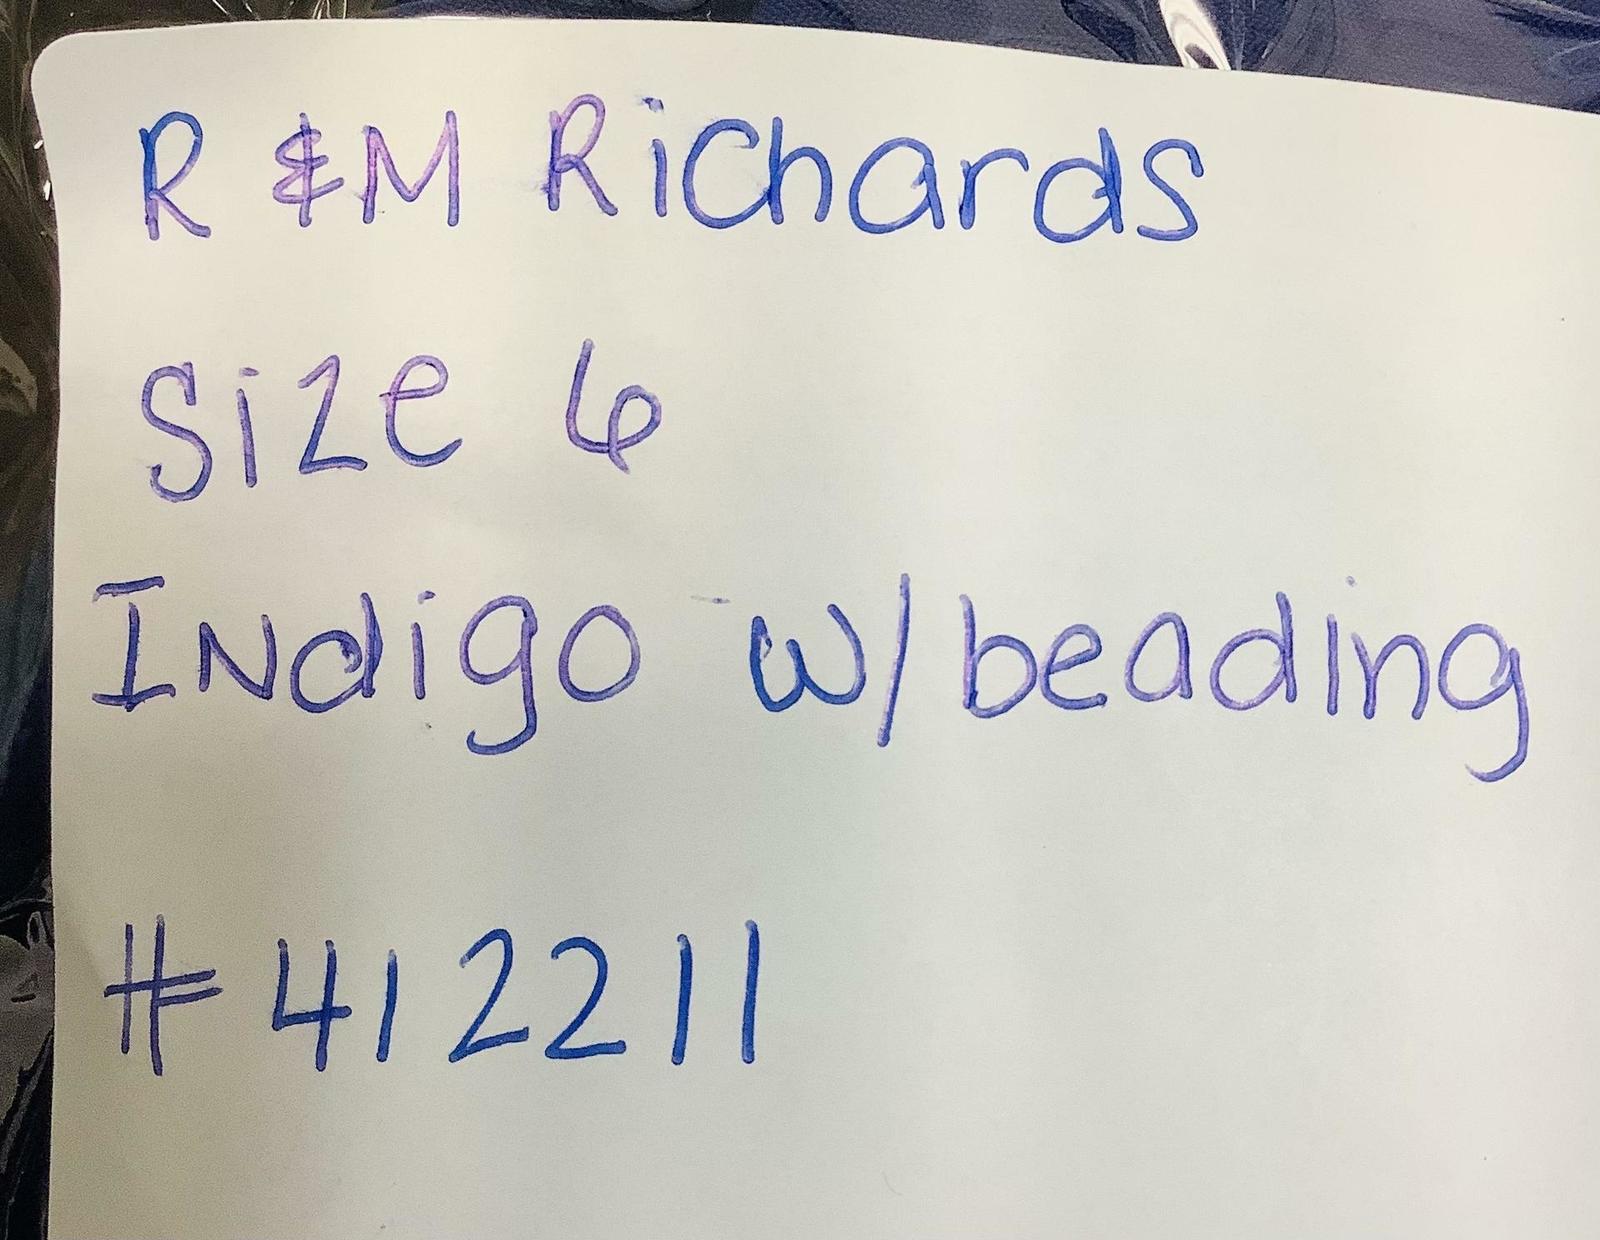 R &M Richards
Size 6
Indigo w/beading
#412211